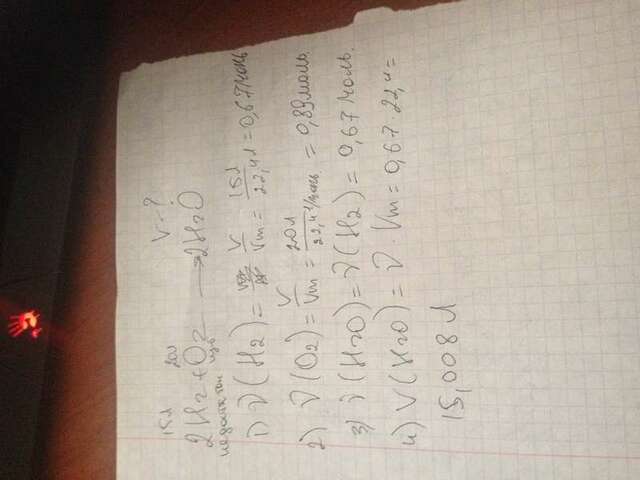 15л 20л V-?
2H2+O2 → 2H2O
недостаток изб
1) ν(H2)= V/Vm = 15л/22,4л =0,67моль
2) ν(O2)= V/Vm = 20л/22,4л/моль = 0,89моль.
3) ν(H2O)= ν(H2)= 0,67моль.
4) V(H2O)= ν·Vm= 0,67·22,4=
15,008л